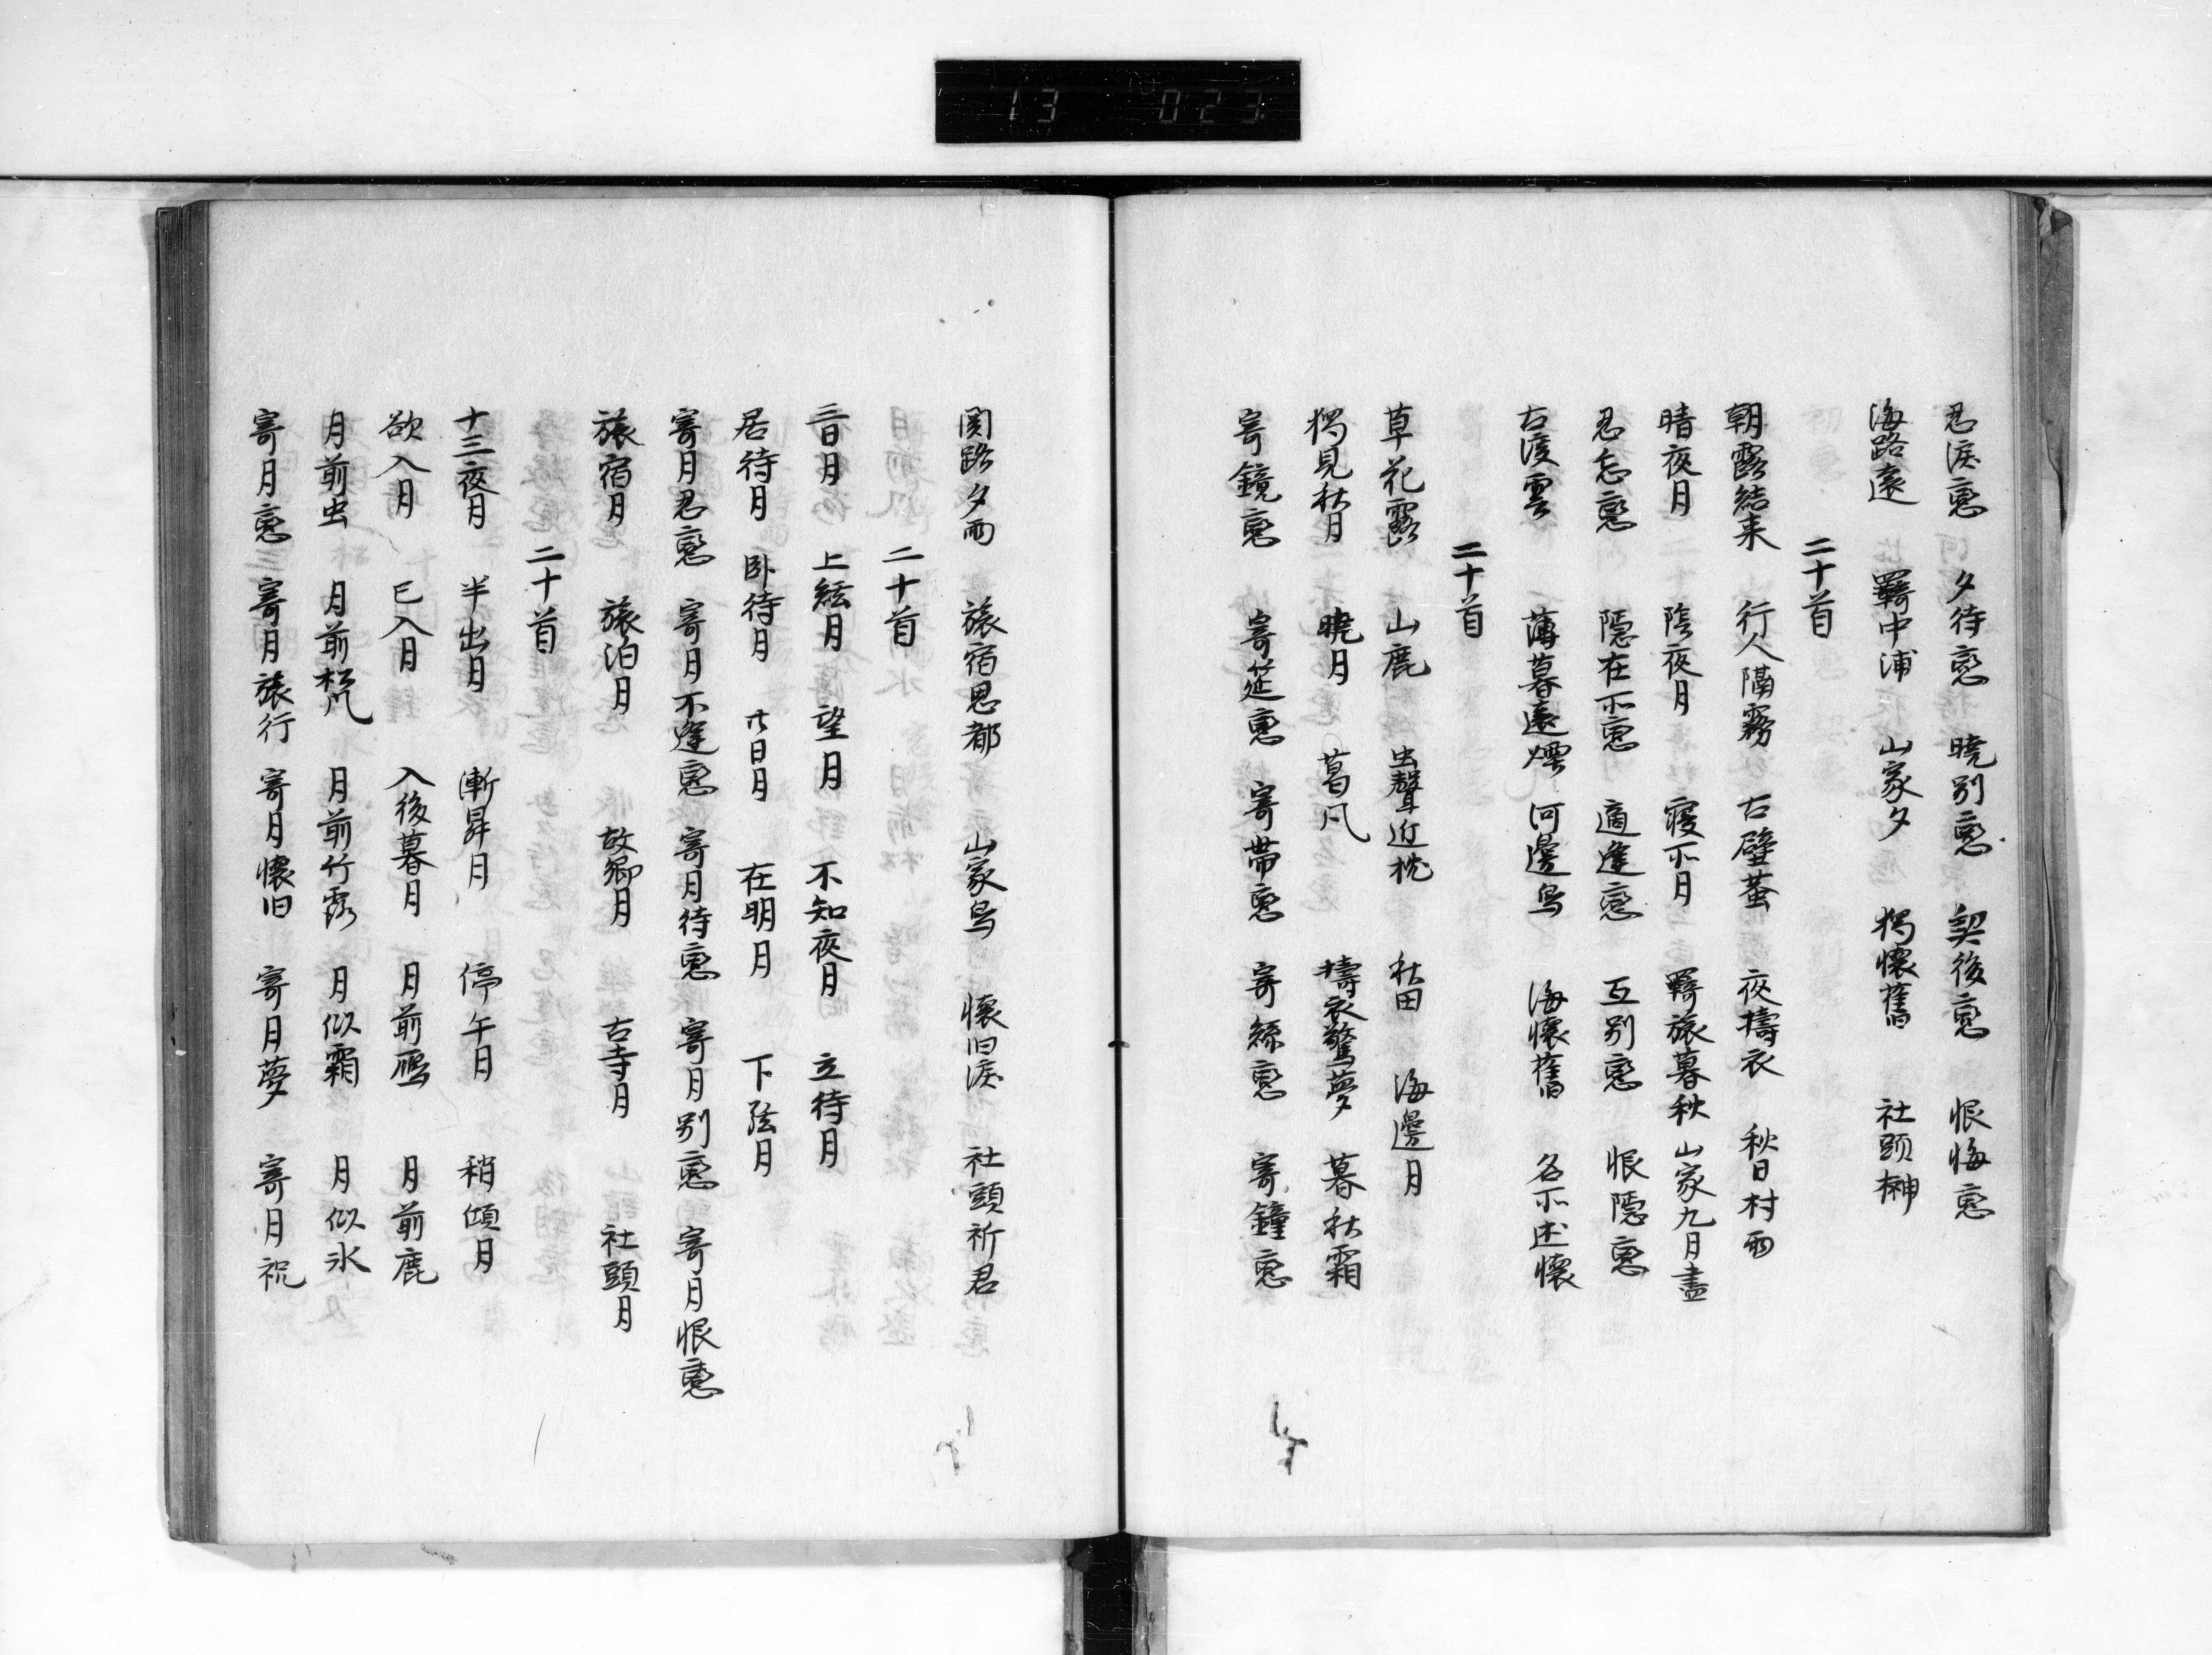 13 023
忍涙恋 夕待恋 暁別恋 契後恋 恨悔恋
海路遠 羇中浦 山家夕 独懐舊 社頭榊
二十首
朝露結来 行人隔霧 古壁蛬 夜擣衣 秋日村雨
晴夜月 陰夜月 寝所月 羇旅暮秋 山家九月盡
忍忘恋 隠在所恋 適逢恋 互別恋 恨隠恋
古渡雲 薄暮遠煙 河邊鳥 海懐舊 各所述懐
二十首
草花露 山鹿 虫聲近枕 秋田 海邊月
獨見秋月 暁月 葛凡 擣衣驚夢 暮秋霜
寄鏡恋 寄筵恋 寄帯恋 寄絲恋 寄鐘恋
関路夕雨 旅宿思都 山家鳥 懐旧涙 社頭祈君
二十首
三日月 上絃月 望月 不知夜月 立待月
居待月 臥待月 廿日月 在明月 下弦月
寄月忍恋 寄月不逢恋 寄月待恋 寄月別恋 寄月恨恋
旅宿月 旅泊月 故郷月 古寺月 社頭月
二十首
十三夜月 半出月 漸昇月 停午月 稍傾月
欲入月 已入月 入後暮月 月前鴈 月前鹿
月前虫 月前松凡 月前竹露 月似霜 月似氷
寄月恋 寄月旅行 寄月懐旧 寄月夢 寄月祝